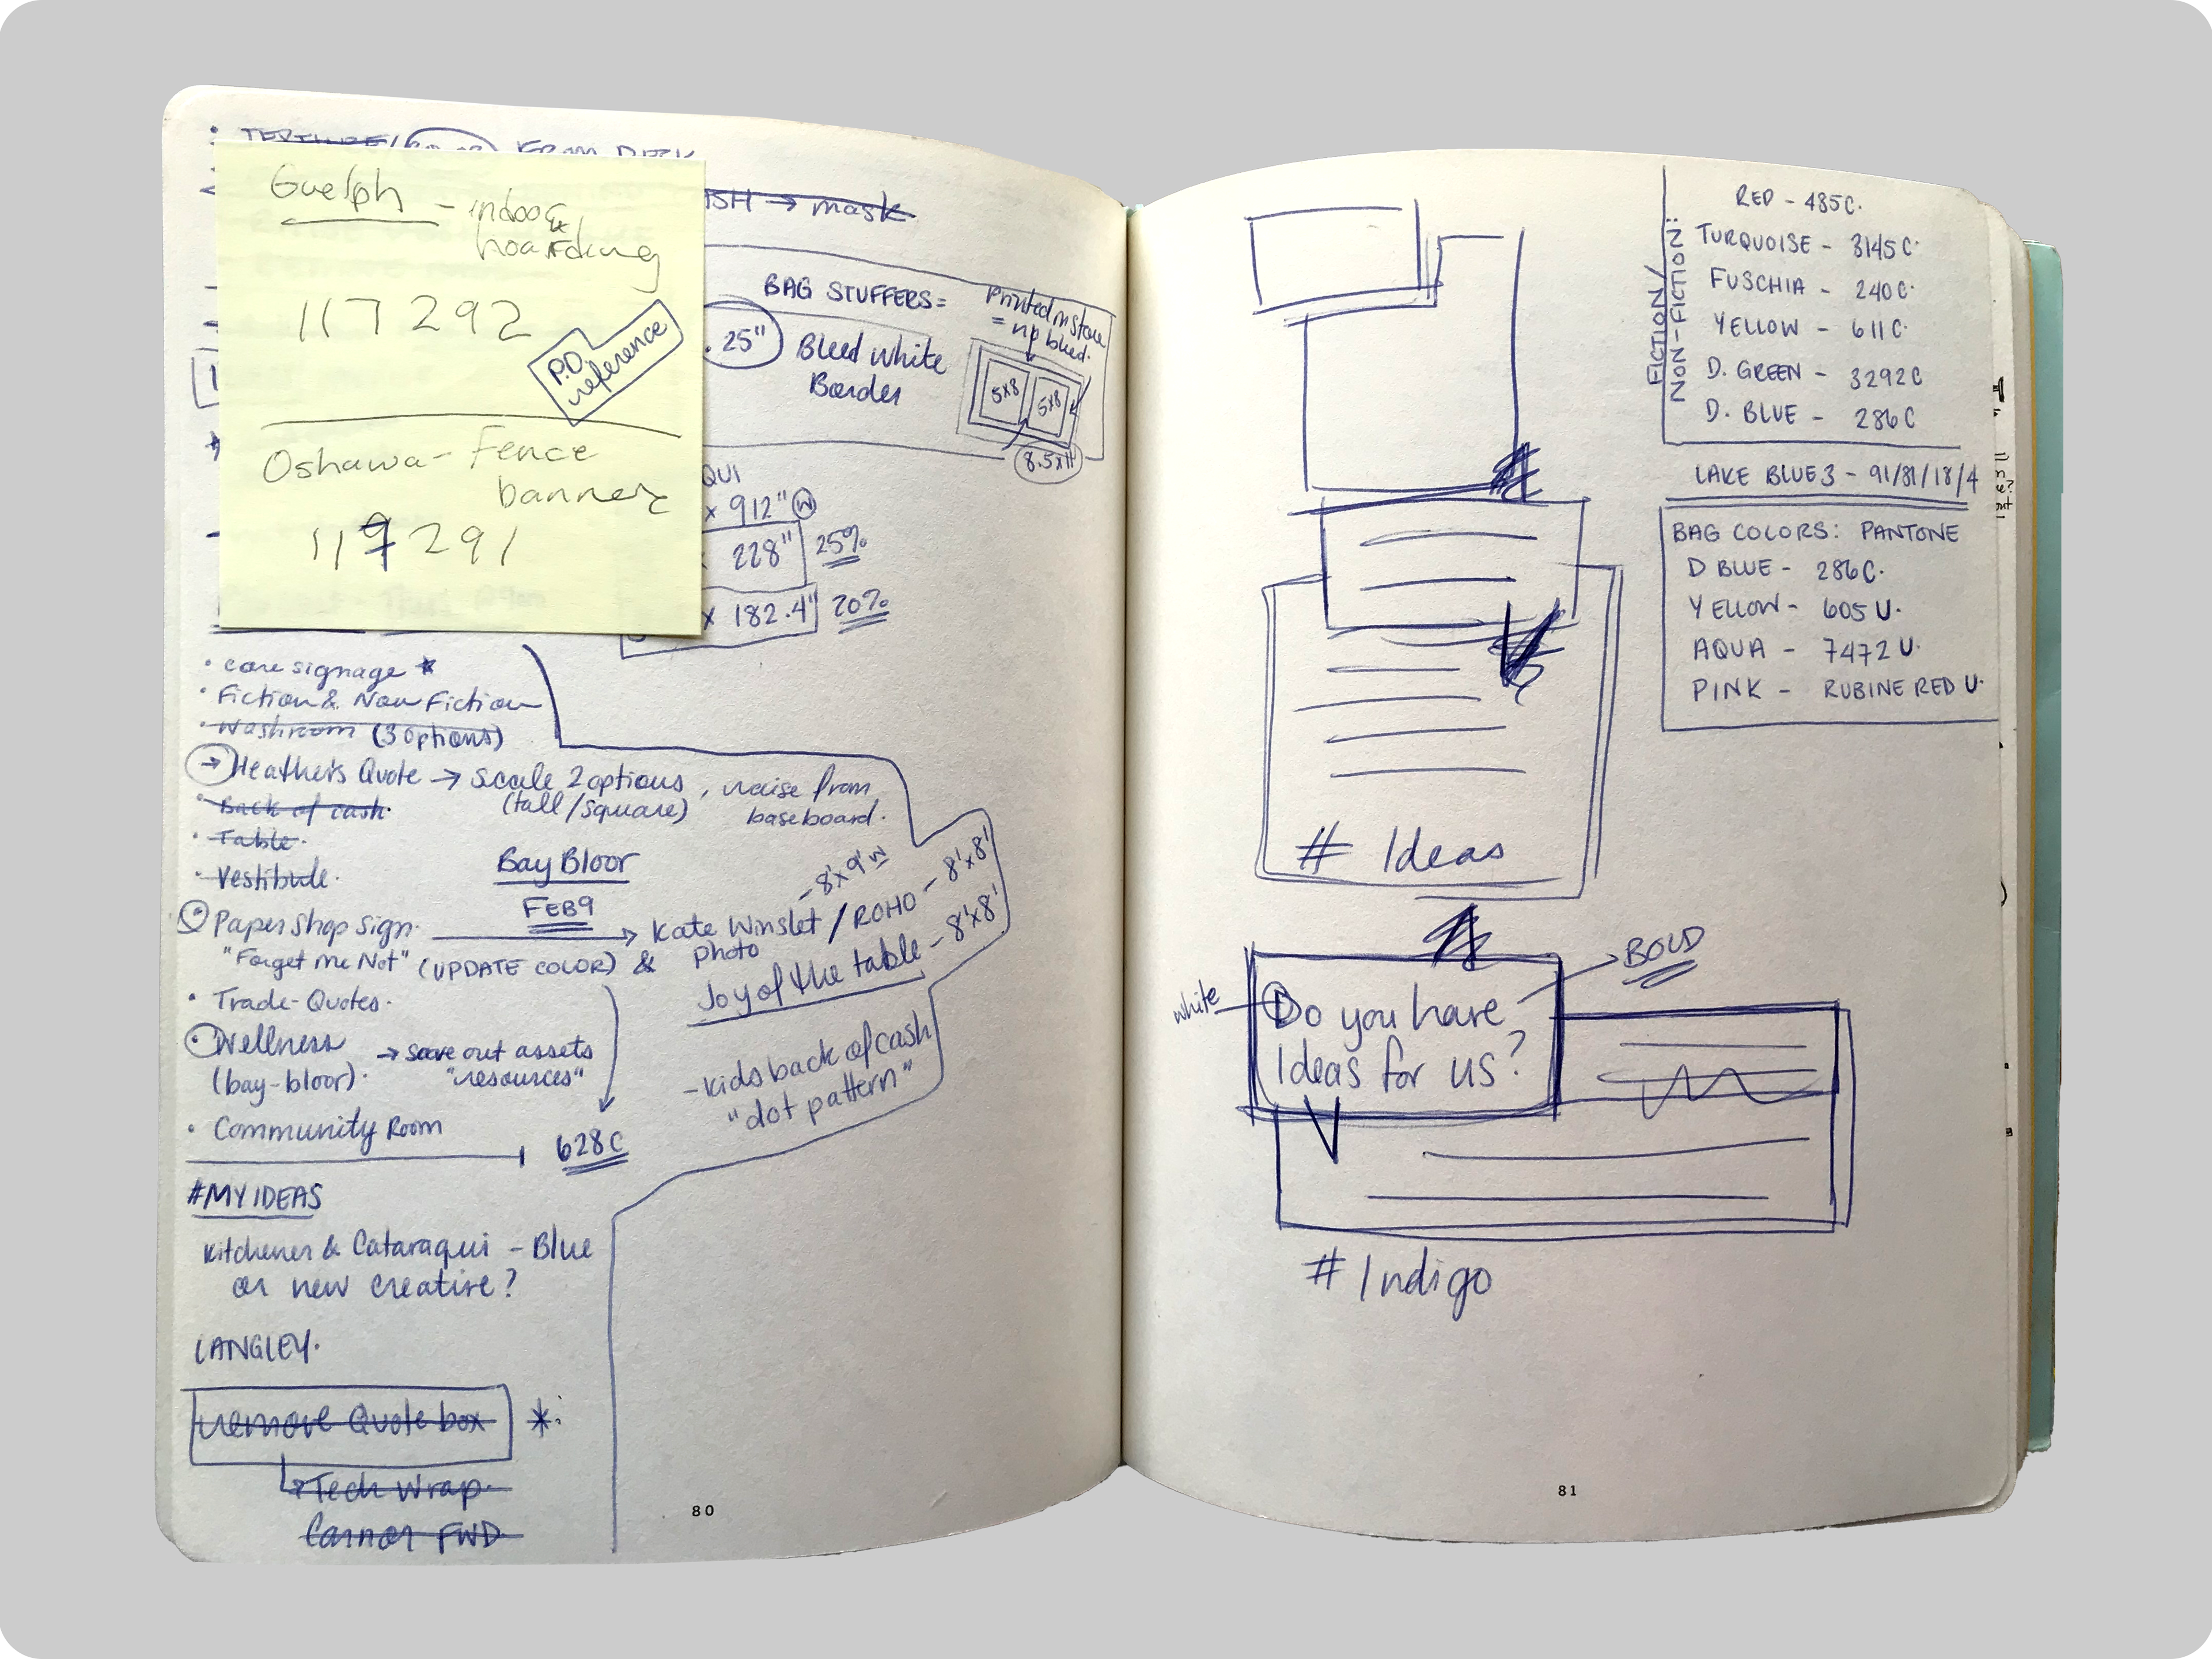 FROM DECK
→ mask
Guelph - indoor
&
hoarding
117292
P.D.
reference
Oshawa - Fence
banner
119291
BAG STUFFERS =
.25"
Bleed White
Border
Printed in Store
= no bleed.
5x8
5x8
8.5x11
QUI
x 912" W
228" 25%
x 182.4" 20%
• core signage ★
• Fiction & Non Fiction
• Washroom (3 options)
→ Heather's Quote → Scale 2 options, raise from
(tall/square) baseboard.
• Back of cash.
• Table.
• Vestibule.
Bay Bloor
FEB 9
• Paper Shop Sign.
"Forget Me Not" (UPDATE COLOR) &
→ Kate Winslet / ROHO - 8'x8'
Photo
- 8'x9' W
Joy of the table - 8'x8'
• Trade-Quotes.
• Wellness
(bay-bloor).
→ save out assets
"resources"
- kids back of cash
"dot pattern"
• Community Room
628C
#MY IDEAS
Kitchener & Cataraqui - Blue
or new creative?
LANGLEY.
remove Quote box *
Tech Wrap
Connor FWD
80
FICTION/
NON-FICTION:
RED - 485C.
TURQUOISE - 3145C.
FUSCHIA - 240C.
YELLOW - 611C.
D. GREEN - 3292C
D. BLUE - 286C
LAKE BLUE 3 - 91/81/18/4
BAG COLORS: PANTONE
D BLUE - 286C.
YELLOW - 605U.
AQUA - 7472U.
PINK - RUBINE RED U.
# Ideas
BOLD
white
Do you have
Ideas for us?
# Indigo
81